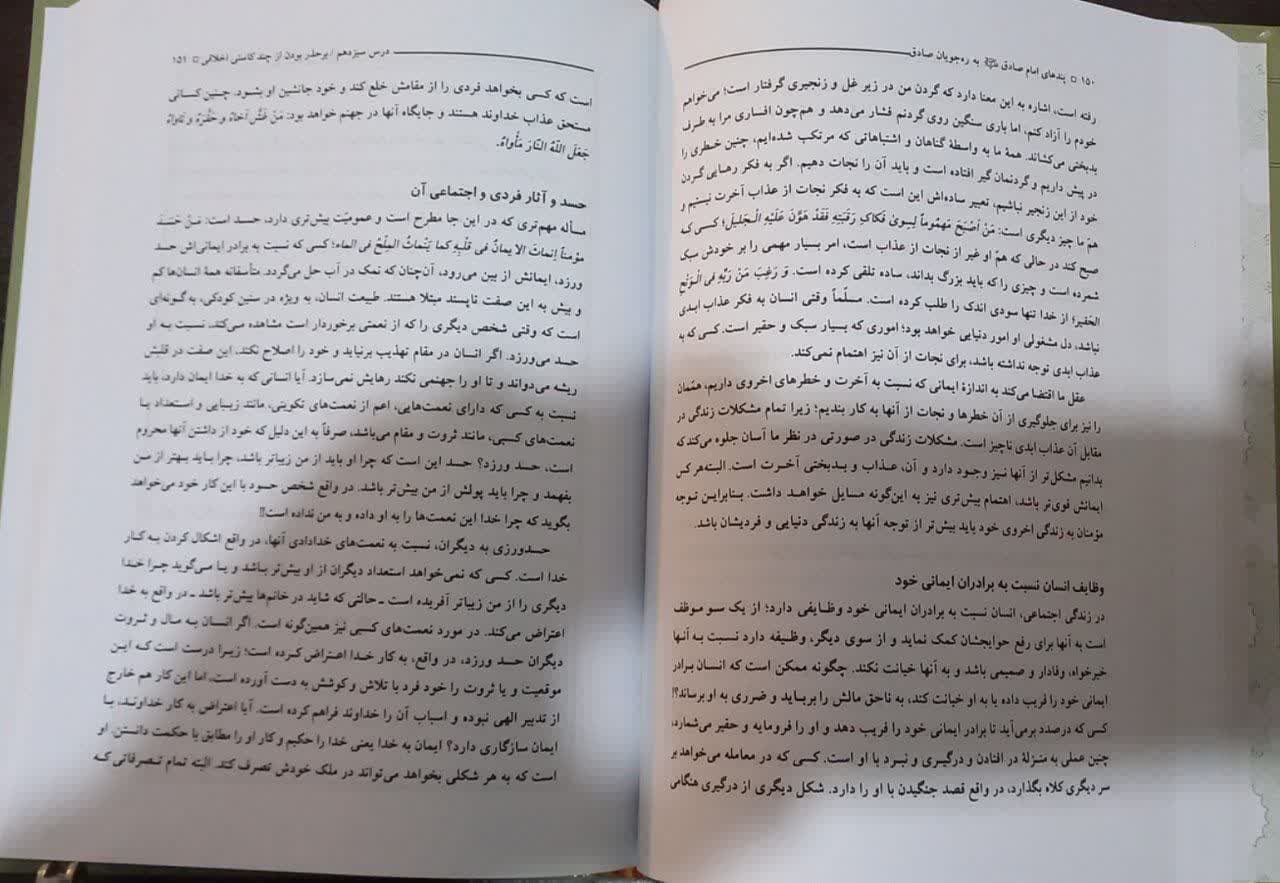 ۱۵۰ □ پندهای امام صادق به ره‌جویان صادق
رفته است، اشاره به این معنا دارد که گردن من در زیر غل و زنجیری گرفتار است؛ می‌خواهم
خودم را آزاد کنم، اما باری سنگین روی گردنم فشار می‌دهد و هم‌چون افساری مرا به طرف
بدبختی می‌کشاند. همهٔ ما به واسطهٔ گناهان و اشتباهاتی که مرتکب شده‌ایم، چنین خطری را
در پیش داریم و گردنمان گیر افتاده است و باید آن را نجات دهیم. اگر به فکر رهایی گردن
خود از این زنجیر نباشیم، تعبیر ساده‌اش این است که به فکر نجات از عذاب آخرت نیستیم و
همّ ما چیز دیگری است: مَنْ اَصْبَحَ مَهْمُوماً لِسِوىٰ فَكاكِ رَقَبَتِهِ فَقَدْ هَوَّنَ عَلَيْهِ الْجَليلَ؛ کسی که
صبح کند در حالی که همّ او غیر از نجات از عذاب است، امر بسیار مهمی را بر خودش سبک
شمرده است و چیزی را که باید بزرگ بداند، ساده تلقی کرده است. وَ رَغِبَ مَنْ رَبِّهِ فِى الْوَتْحِ
الحَقيرِ؛ از خدا تنها سودی اندک را طلب کرده است. مسلّماً وقتی انسان به فکر عذاب ابدی
نباشد، دل مشغولی او امور دنیایی خواهد بود؛ اموری که بسیار سبک و حقیر است. کسی که به
عذاب ابدی توجه نداشته باشد، برای نجات از آن نیز اهتمام نمی‌کند.
عقل ما اقتضا می‌کند به اندازهٔ ایمانی که نسبت به آخرت و خطرهای اخروی داریم، همّمان
را نیز برای جلوگیری از آن خطرها و نجات از آنها به کار بندیم؛ زیرا تمام مشکلات زندگی در
مقابل آن عذاب ابدی ناچیز است. مشکلات زندگی در صورتی در نظر ما آسان جلوه می‌کند که
بدانیم مشکل‌تر از آنها نیز وجود دارد و آن، عذاب و بدبختی آخرت است. البته‌هر کس
ایمانش قوی‌تر باشد، اهتمام بیش‌تری نیز به این‌گونه مسایل خواهد داشت. بنابراین توجه
مؤمنان به زندگی اخروی خود باید بیش‌تر از توجه آنها به زندگی دنیایی و فردیشان باشد.
وظایف انسان نسبت به برادران ایمانی خود
در زندگی اجتماعی، انسان نسبت به برادران ایمانی خود وظایفی دارد؛ از یک سو موظف
است به آنها برای رفع حوایجشان کمک نماید و از سوی دیگر، وظیفه دارد نسبت به آنها
خیرخواه، وفادار و صمیمی باشد و به آنها خیانت نکند. چگونه ممکن است که انسان برادر
ایمانی خود را فریب داده یا به او خیانت کند، به ناحق مالش را برباید و ضرری به او برساند؟!
کسی که درصدد برمی‌آید تا برادر ایمانی خود را فریب دهد و او را فرومایه و حقیر می‌شمارد،
چنین عملی به منزلهٔ در افتادن و درگیری و نبرد با او است. کسی که در معامله می‌خواهد بر
سر دیگری کلاه بگذارد، در واقع قصد جنگیدن با او را دارد. شکل دیگری از درگیری هنگامی
درس سیزدهم / برحذر بودن از چند کاستی اخلاقی □ ۱۵۱
است که کسی بخواهد فردی را از مقامش خلع کند و خود جانشین او بشود. چنین کسانی
مستحق عذاب خداوند هستند و جایگاه آنها در جهنم خواهد بود: مَنْ غَشَّ اَخاهُ وَ حَقَّرَهُ وَ ناواهُ
جَعَلَ اللّهُ النّارَ مَأْواهُ.
حسد و آثار فردی و اجتماعی آن
مسأله مهم‌تری که در این جا مطرح است و عمومیّت بیش‌تری دارد، حسد است: مَنْ حَسَدَ
مؤمناً اِنماثَ الايمانُ فى قَلْبِهِ كما يَنْماثُ المِلْحُ فى الماء؛ کسی که نسبت به برادر ایمانی‌اش حسد
ورزد، ایمانش از بین می‌رود، آن‌چنان که نمک در آب حل می‌گردد. متأسفانه همهٔ انسان‌ها کم
و بیش به این صفت ناپسند مبتلا هستند. طبیعت انسان، به ویژه در سنین کودکی، به گونه‌ای
است که وقتی شخص دیگری را که از نعمتی برخوردار است مشاهده می‌کند، نسبت به او
حسد می‌ورزد. اگر انسان در مقام تهذیب برنیاید و خود را اصلاح نکند، این صفت در قلبش
ریشه می‌دواند و تا او را جهنمی نکند رهایش نمی‌سازد. آیا انسانی که به خدا ایمان دارد، باید
نسبت به کسی که دارای نعمت‌هایی، اعم از نعمت‌های تکوینی، مانند زیبایی و استعداد یا
نعمت‌های کسبی، مانند ثروت و مقام می‌باشد، صرفاً به این دلیل که خود از داشتن آنها محروم
است، حسد ورزد؟ حسد این است که چرا او باید از من زیباتر باشد، چرا باید بهتر از من
بفهمد و چرا باید پولش از من بیش‌تر باشد. در واقع شخص حسود با این کار خود می‌خواهد
بگوید که چرا خدا این نعمت‌ها را به او داده و به من نداده است!!
حسدورزی به دیگران، نسبت به نعمت‌های خدادادی آنها، در واقع اشکال کردن به کار
خدا است. کسی که نمی‌خواهد استعداد دیگران از او بیش‌تر باشد و یا می‌گوید چرا خدا
دیگری را از من زیباتر آفریده است ـ حالتی که شاید در خانم‌ها بیش‌تر باشد ـ در واقع به خدا
اعتراض می‌کند. در مورد نعمت‌های کسبی نیز همین‌گونه است. اگر انسان به مال و ثروت
دیگران حسد ورزد، در واقع، به کار خدا اعتراض کرده است؛ زیرا درست است که این
موقعیت و یا ثروت را خود فرد با تلاش و کوشش به دست آورده است، اما این کار هم خارج
از تدبیر الهی نبوده و اسباب آن را خداوند فراهم کرده است. آیا اعتراض به کار خداوند، با
ایمان سازگاری دارد؟ ایمان به خدا یعنی خدا را حکیم و کار او را مطابق با حکمت دانستن. او
است که به هر شکلی بخواهد می‌تواند در ملک خودش تصرف کند. البته تمام تصرفاتی که